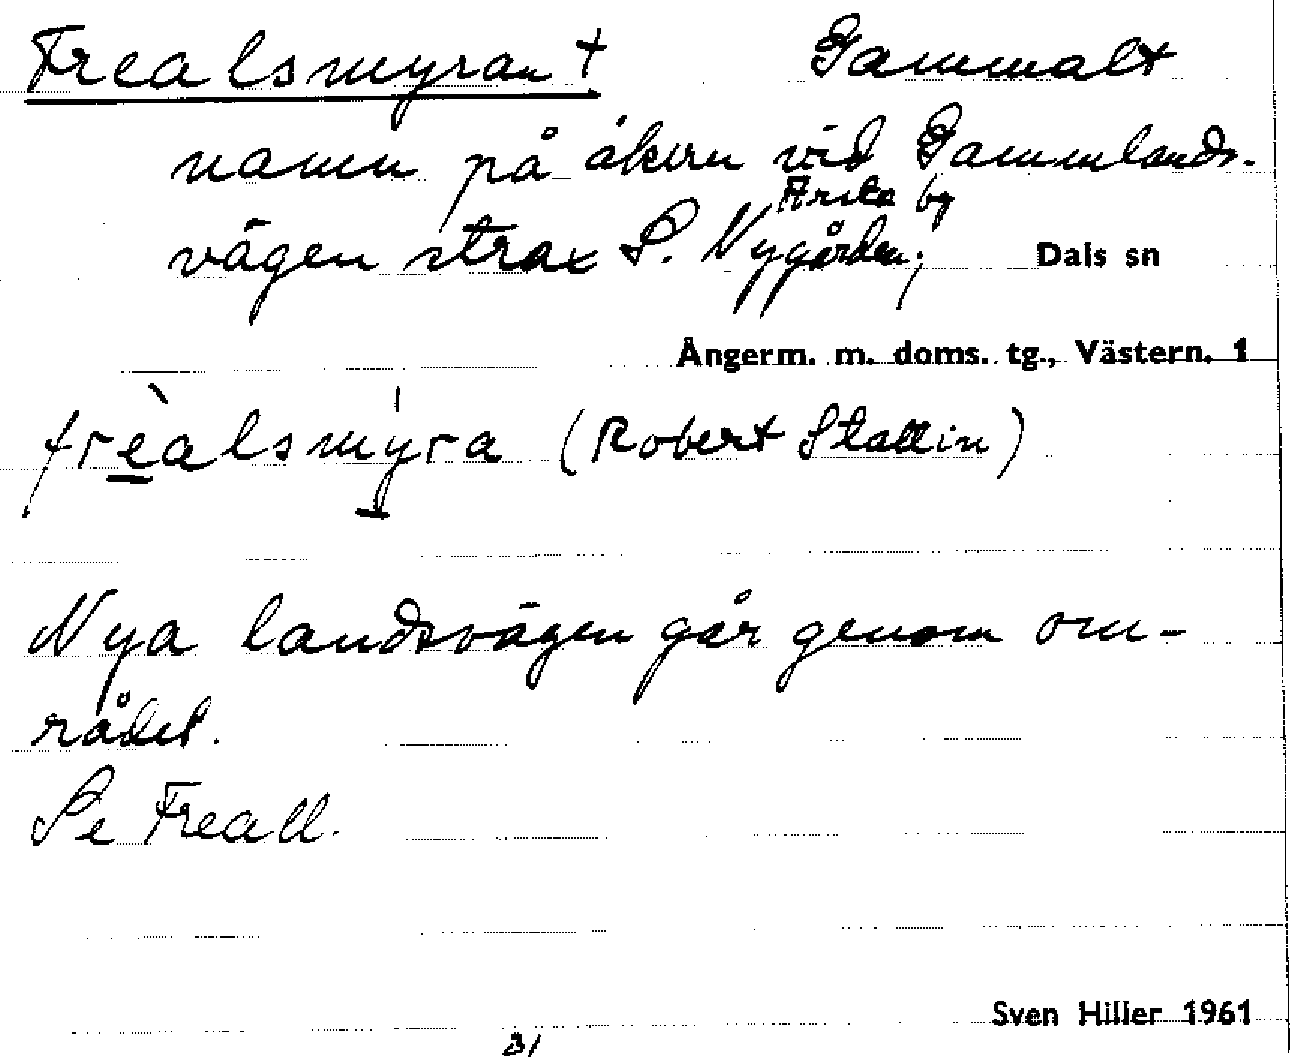 Frealsmyran † Gammalt
namn på åkern vid Gammlands-
Arsta by
vägen strax S. Nygården, Dals sn
Ångerm. m. doms. tg., Västern. 1
frèalsmýra (Robert Stattin)
Nya landsvägen går genom om-
rådet.
Se Freall.
Sven Hiller 1961
31